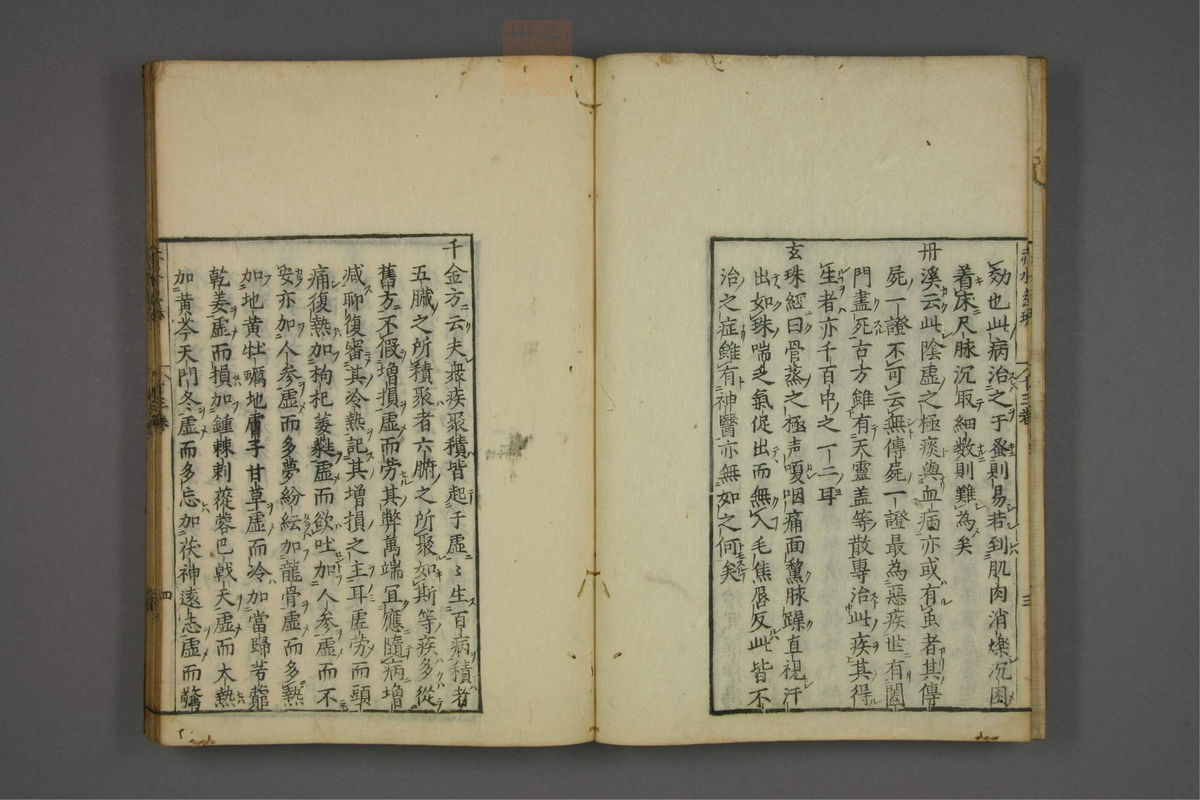 効也此病治之于蚤則易若到肌肉消爍沉困
着床尺脉沉取細数則難為矣
丹溪云此陰虚之極痰與血病亦或有虫者其傳
屍一證不可云無傳屍一證最為惡疾世有闔
門盡死古方雖有天靈盖等散專治此疾其得
生者亦千百中之一二耳
玄珠經曰骨蒸之極声嗄咽痛面黧脉躁直視汗
出如珠喘乏氣促出而無入毛焦唇反此皆不
治之症雖有神醫亦無如之何矣
千金方云夫衆疾聚積皆起于虚〻生百病積者
五臓之所積聚者六腑之所聚如斯等疾多從
舊方不假增損虚而勞其弊萬端宜應隨病增
減聊復審其冷熱記其增損之主耳虚勞而頭
痛復熱加枸杞萎蕤虚而欲吐加人参虚而不
安亦加人参虚而多夢紛紜加龍骨虚而多熱
加地黄牡蠣地膚子甘草虚而冷加當歸芎藭
乾姜虚而損加鍾棘刺蓯蓉巴戟天虚而大熱
加黄芩天門冬虚而多忘加茯神遠志虚而